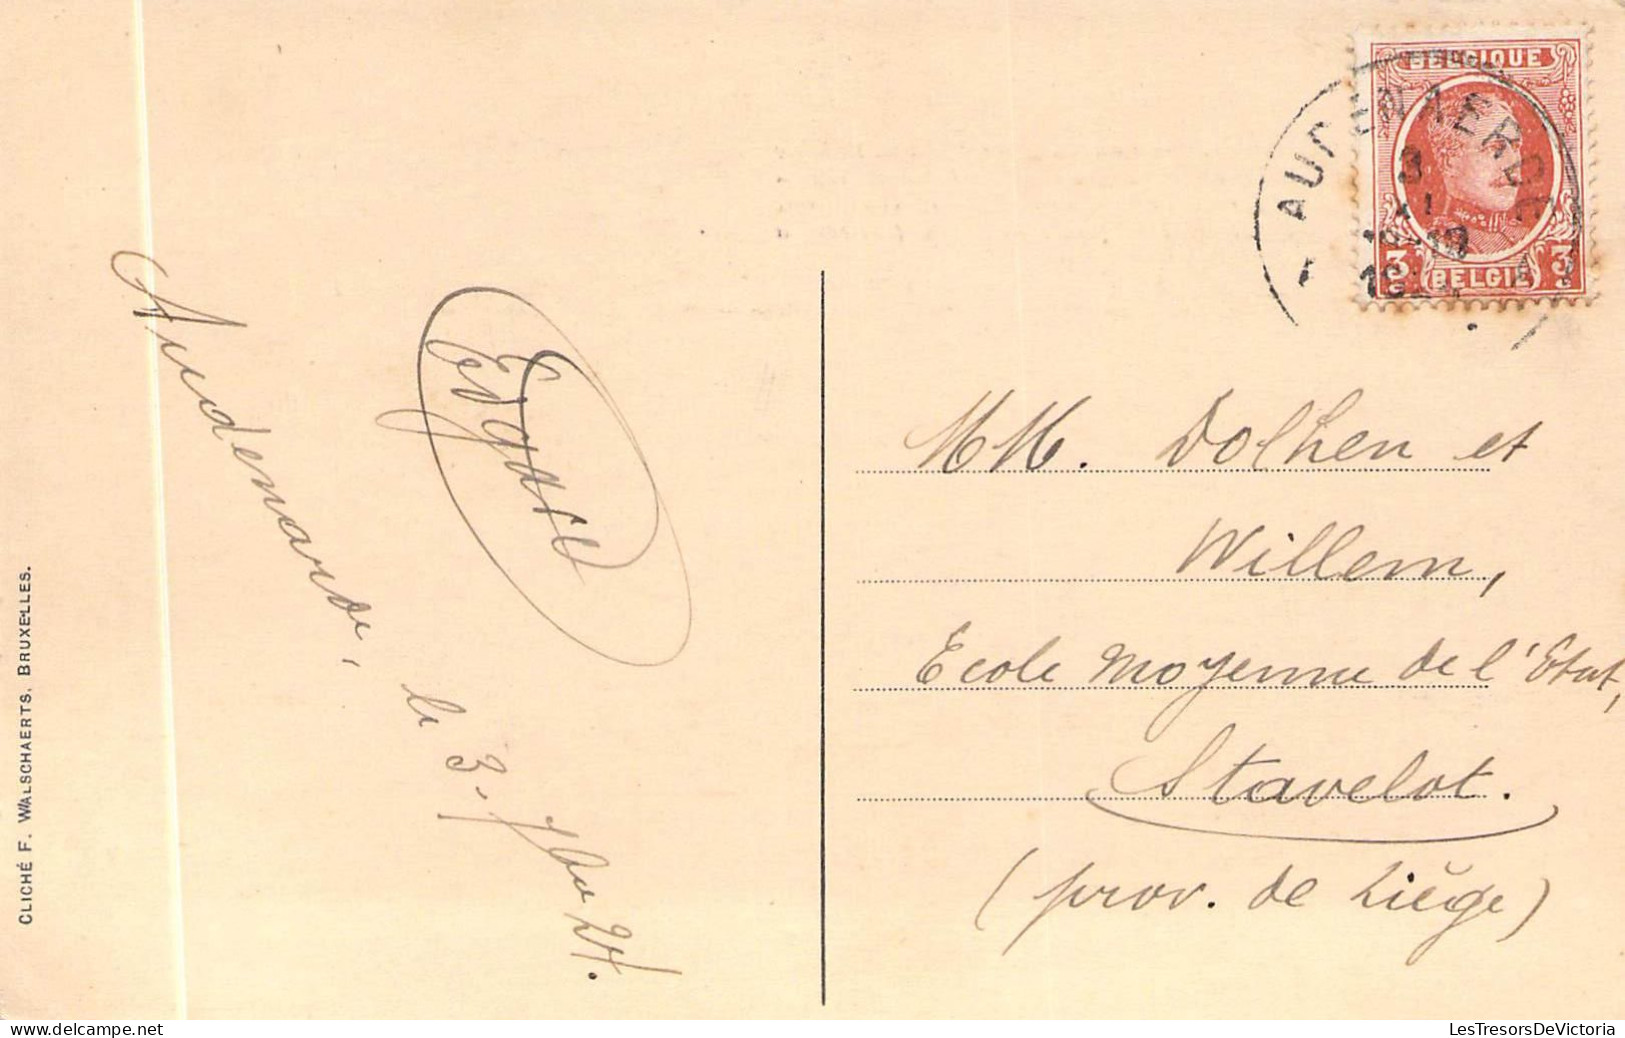 BELGIQUE
AUDENAERDE
3
3 BELGIË 3
Audenarde,
Edgard
le 3 - 7bre 24.
CLICHÉ F. WALSCHAERTS, BRUXELLES.
MM. Dolhen et
Willem,
Ecole moyenne de l'Etat,
Stavelot.
(prov. de Liège)
LesTresorsDeVictoria
LesTresorsDeVictoria.com